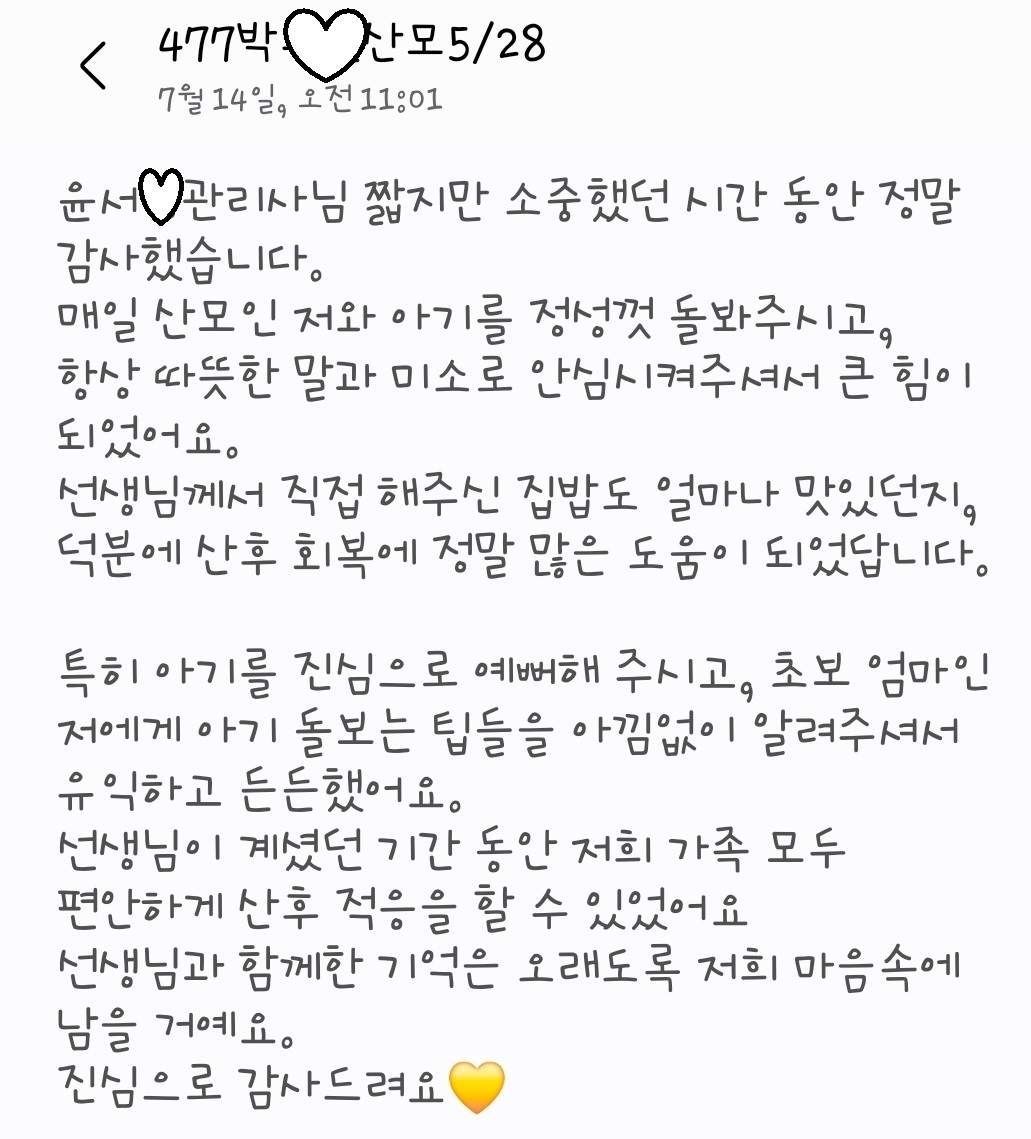 477박 산모5/28
7월 14일, 오전 11:01
윤서 관리사님 짧지만 소중했던 시간 동안 정말
감사했습니다.
매일 산모인 저와 아기를 정성껏 돌봐주시고,
항상 따뜻한 말과 미소로 안심시켜주셔서 큰 힘이
되었어요.
선생님께서 직접 해주신 집밥도 얼마나 맛있던지,
덕분에 산후 회복에 정말 많은 도움이 되었답니다.
특히 아기를 진심으로 예뻐해 주시고, 초보 엄마인
저에게 아기 돌보는 팁들을 아낌없이 알려주셔서
유익하고 든든했어요.
선생님이 계셨던 기간 동안 저희 가족 모두
편안하게 산후 적응을 할 수 있었어요
선생님과 함께한 기억은 오래도록 저희 마음속에
남을 거예요.
진심으로 감사드려요💛